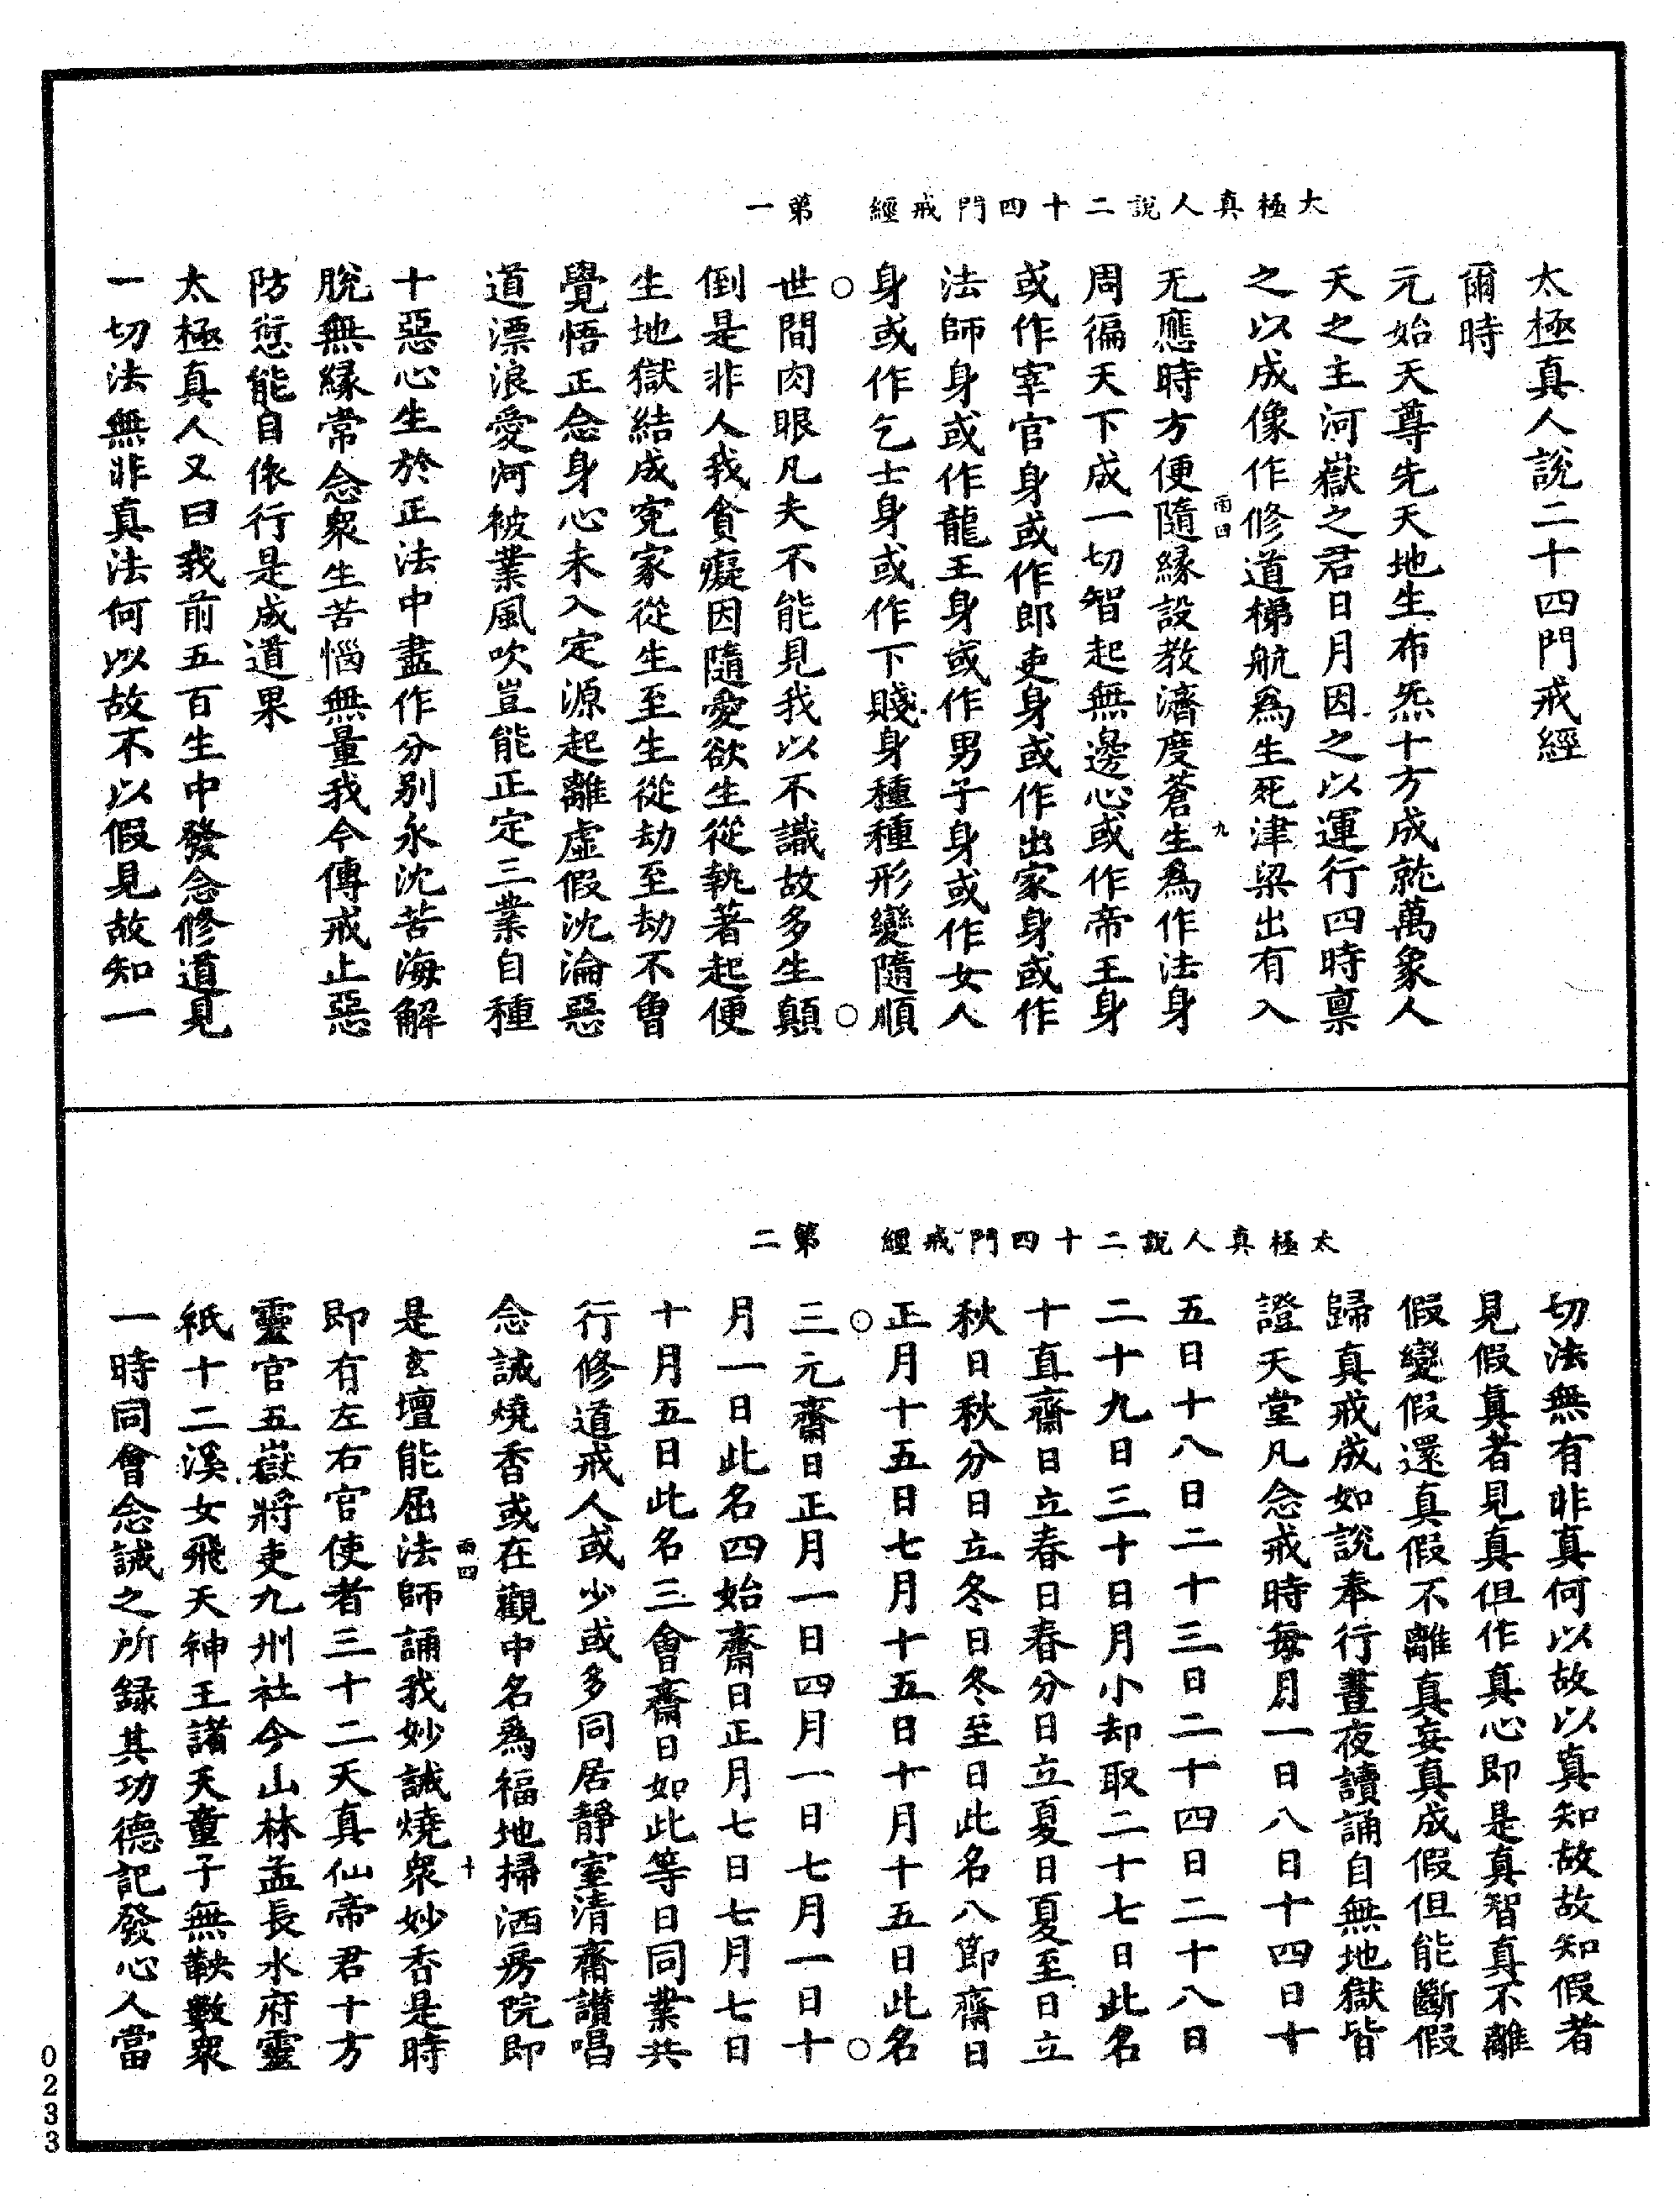 太極真人說二十四門戒經　第一
太極真人說二十四門戒經
爾時
元始天尊先天地生布炁十方成就萬象人
天之主河嶽之君日月因之以運行四時稟
之以成像作修道梯航為生死津梁出有入
无應時方便隨緣設教濟度蒼生為作法身
雨四　九
周徧天下成一切智起無邊心或作帝王身
或作宰官身或作郎吏身或作出家身或作
法師身或作龍王身或作男子身或作女人
身或作乞士身或作下賤身種種形變隨順
世間肉眼凡夫不能見我以不識故多生顛
倒是非人我貪癡因隨愛欲生從執著起便
生地獄結成寃家從生至生從劫至劫不曾
覺悟正念身心未入定源起離虛假沈淪惡
道漂浪愛河被業風吹豈能正定三業自種
十惡心生於正法中盡作分別永沈苦海解
脫無緣常念衆生苦惱無量我今傳戒止惡
防愆能自依行是成道果
太極真人又曰我前五百生中發念修道見
一切法無非真法何以故不以假見故知一
太極真人說二十四門戒經　第二
切法無有非真何以故以真知故故知假者
見假真者見真但作真心即是真智真不離
假變假還真假不離真妄真成假但能斷假
歸真戒成如說奉行晝夜讀誦自無地獄皆
證天堂凡念戒時每月一日八日十四日十
五日十八日二十三日二十四日二十八日
二十九日三十日月小却取二十七日此名
十直齋日立春日春分日立夏日夏至日立
秋日秋分日立冬日冬至日此名八節齋日
正月十五日七月十五日十月十五日此名
三元齋日正月一日四月一日七月一日十
月一日此名四始齋日正月七日七月七日
十月五日此名三會齋日如此等日同業共
行修道戒人或少或多同居靜室清齋讚唱
念誡燒香或在觀中名為福地掃洒房院即
雨四　十
是玄壇能屈法師誦我妙誡燒衆妙香是時
即有左右官使者三十二天真仙帝君十方
靈官五嶽將吏九州社令山林孟長水府靈
祇十二溪女飛天神王諸天童子無鞅數衆
一時同會念誡之所録其功德記發心人當
0233